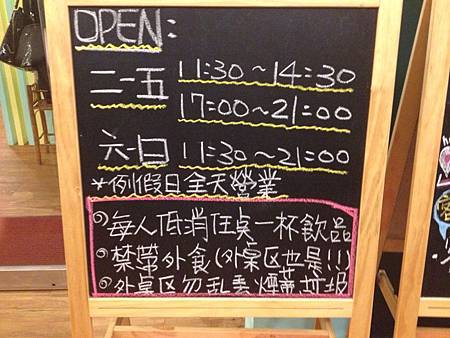 OPEN:
二-五 11:30~14:30
17:00~21:00
六-日 11:30~21:00
*例假日全天營業
每人低消任点一杯飲品
禁帶外食(外桌区也是!!)
外桌区勿乱丟煙蒂垃圾